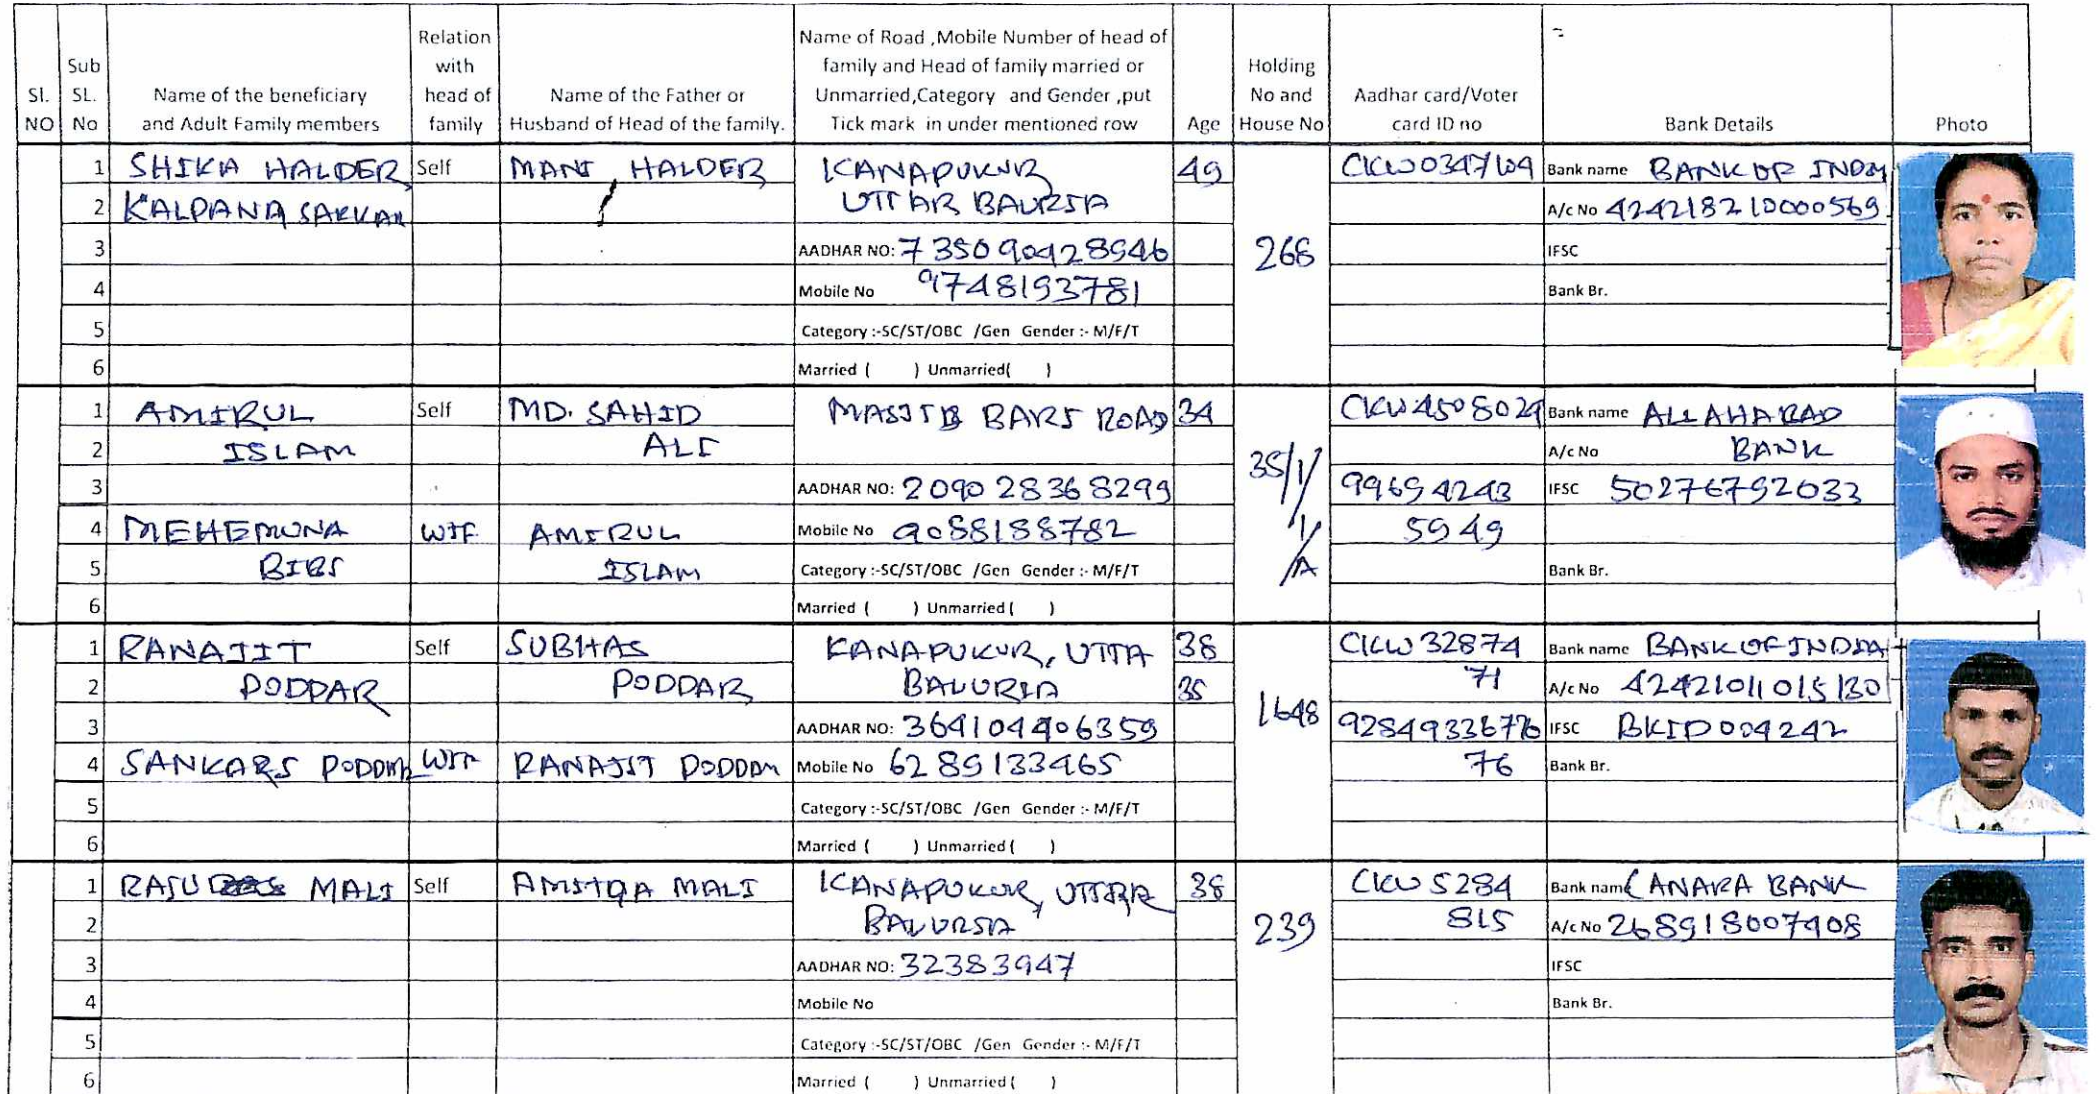 Sl. NO
Sub SL. No
Name of the beneficiary and Adult Family members
Relation with head of family
Name of the Father or Husband of Head of the family.
Name of Road ,Mobile Number of head of family and Head of family married or Unmarried,Category and Gender ,put Tick mark in under mentioned row
Age
Holding No and House No
Aadhar card/Voter card ID no
Bank Details
Photo
1 SHIKA HALDER Self MANI HALDER KANAPUKUR 49 CKW0347109 Bank name BANK OF INDIA
2 KALPANA SARKAR UTTAR BAURIA A/c No 424218210000569
3 AADHAR NO: 735090428946 268 IFSC
4 Mobile No 9748193781 Bank Br.
5 Category :-SC/ST/OBC /Gen Gender :- M/F/T
6 Married ( ) Unmarried( )
1 AMIRUL Self MD. SAHID MASJID BARI ROAD 34 CKW4508029 Bank name ALLAHABAD
2 ISLAM ALI A/c No BANK
3 AADHAR NO: 209028368299 35/1/ 99694243 IFSC 50276792033
4 MEHEMUNA WIF AMIRUL Mobile No 9088188782 1/ 5949
5 BIBI ISLAM Category :-SC/ST/OBC /Gen Gender :- M/F/T /A Bank Br.
6 Married ( ) Unmarried ( )
1 RANAJIT Self SUBHAS KANAPUKUR, UTTA 38 CKW32874 Bank name BANK OF INDIA
2 PODDAR PODDAR BALURIA 35 71 A/c No 42421011015130
3 AADHAR NO: 364104406359 1648 IFSC BKID004242
4 SANKARI PODDAR RANAJIT PODDAR Mobile No 6289133465 76 Bank Br.
5 Category :-SC/ST/OBC /Gen Gender :- M/F/T
6 Married ( ) Unmarried ( )
1 RAJU MALI Self MALI KANAPUKUR, UTTAR 38 CKW5284 Bank name CANARA BANK
2 BALURIA 815 A/c No 268918007408
3 AADHAR NO: 32383947 239 IFSC
4 Mobile No Bank Br.
5 Category :-SC/ST/OBC /Gen Gender :- M/F/T
6 Married ( ) Unmarried ( )